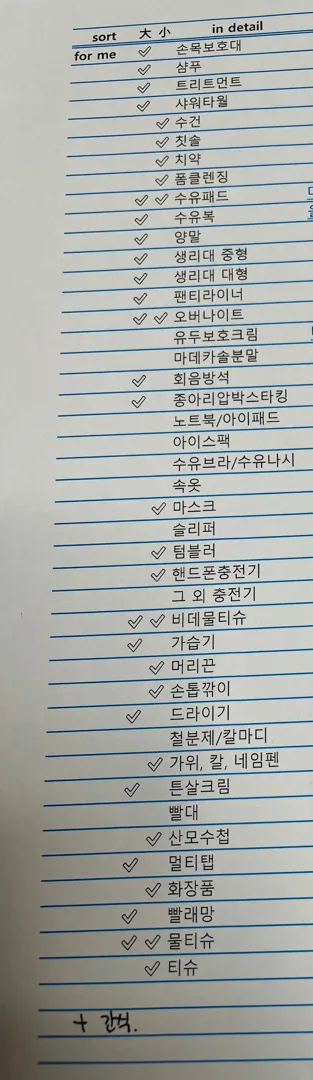 sort 大 小 in detail
for me ✓ 손목보호대
✓ 샴푸
✓ 트리트먼트
✓ 샤워타월
✓ 수건
✓ 칫솔
✓ 치약
✓ 폼클렌징
✓ ✓ 수유패드
✓ 수유복
✓ 양말
✓ 생리대 중형
✓ 생리대 대형
✓ 팬티라이너
✓ ✓ 오버나이트
유두보호크림
마데카솔분말
✓ 회음방석
✓ 종아리압박스타킹
노트북/아이패드
아이스팩
수유브라/수유나시
속옷
✓ 마스크
슬리퍼
✓ 텀블러
✓ 핸드폰충전기
그 외 충전기
✓ ✓ 비데물티슈
✓ 가습기
✓ 머리끈
✓ 손톱깎이
✓ 드라이기
철분제/칼마디
✓ 가위, 칼, 네임펜
✓ 튼살크림
빨대
✓ 산모수첩
✓ 멀티탭
✓ 화장품
✓ 빨래망
✓ ✓ 물티슈
✓ 티슈
+ 간식.